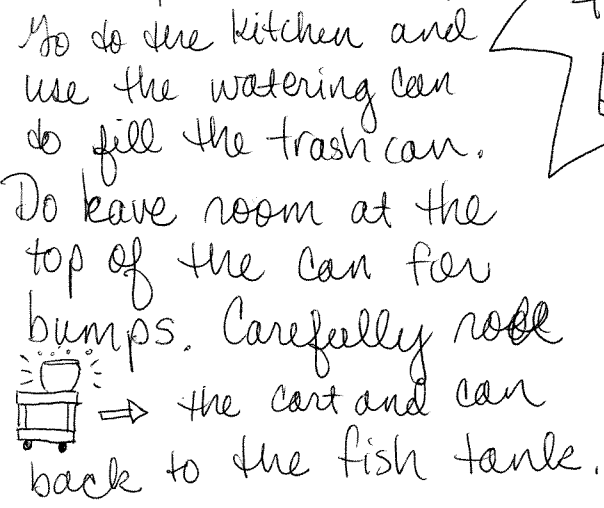 Go to the kitchen and
use the watering can
to fill the trash can.
Do leave room at the
top of the can for
bumps. Carefully roll
the cart and can
back to the fish tank.